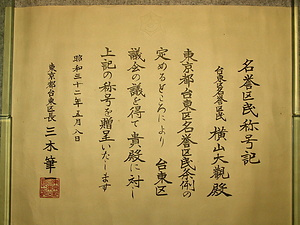 名誉区民称号記
台東区名誉区民 横山大観殿
東京都台東区名誉区民条例の
定めるところにより 台東区
議会の議を得て貴殿に対し
上記の称号を贈呈いたします
昭和三十二年五月八日
東京都台東区長 三木筆一